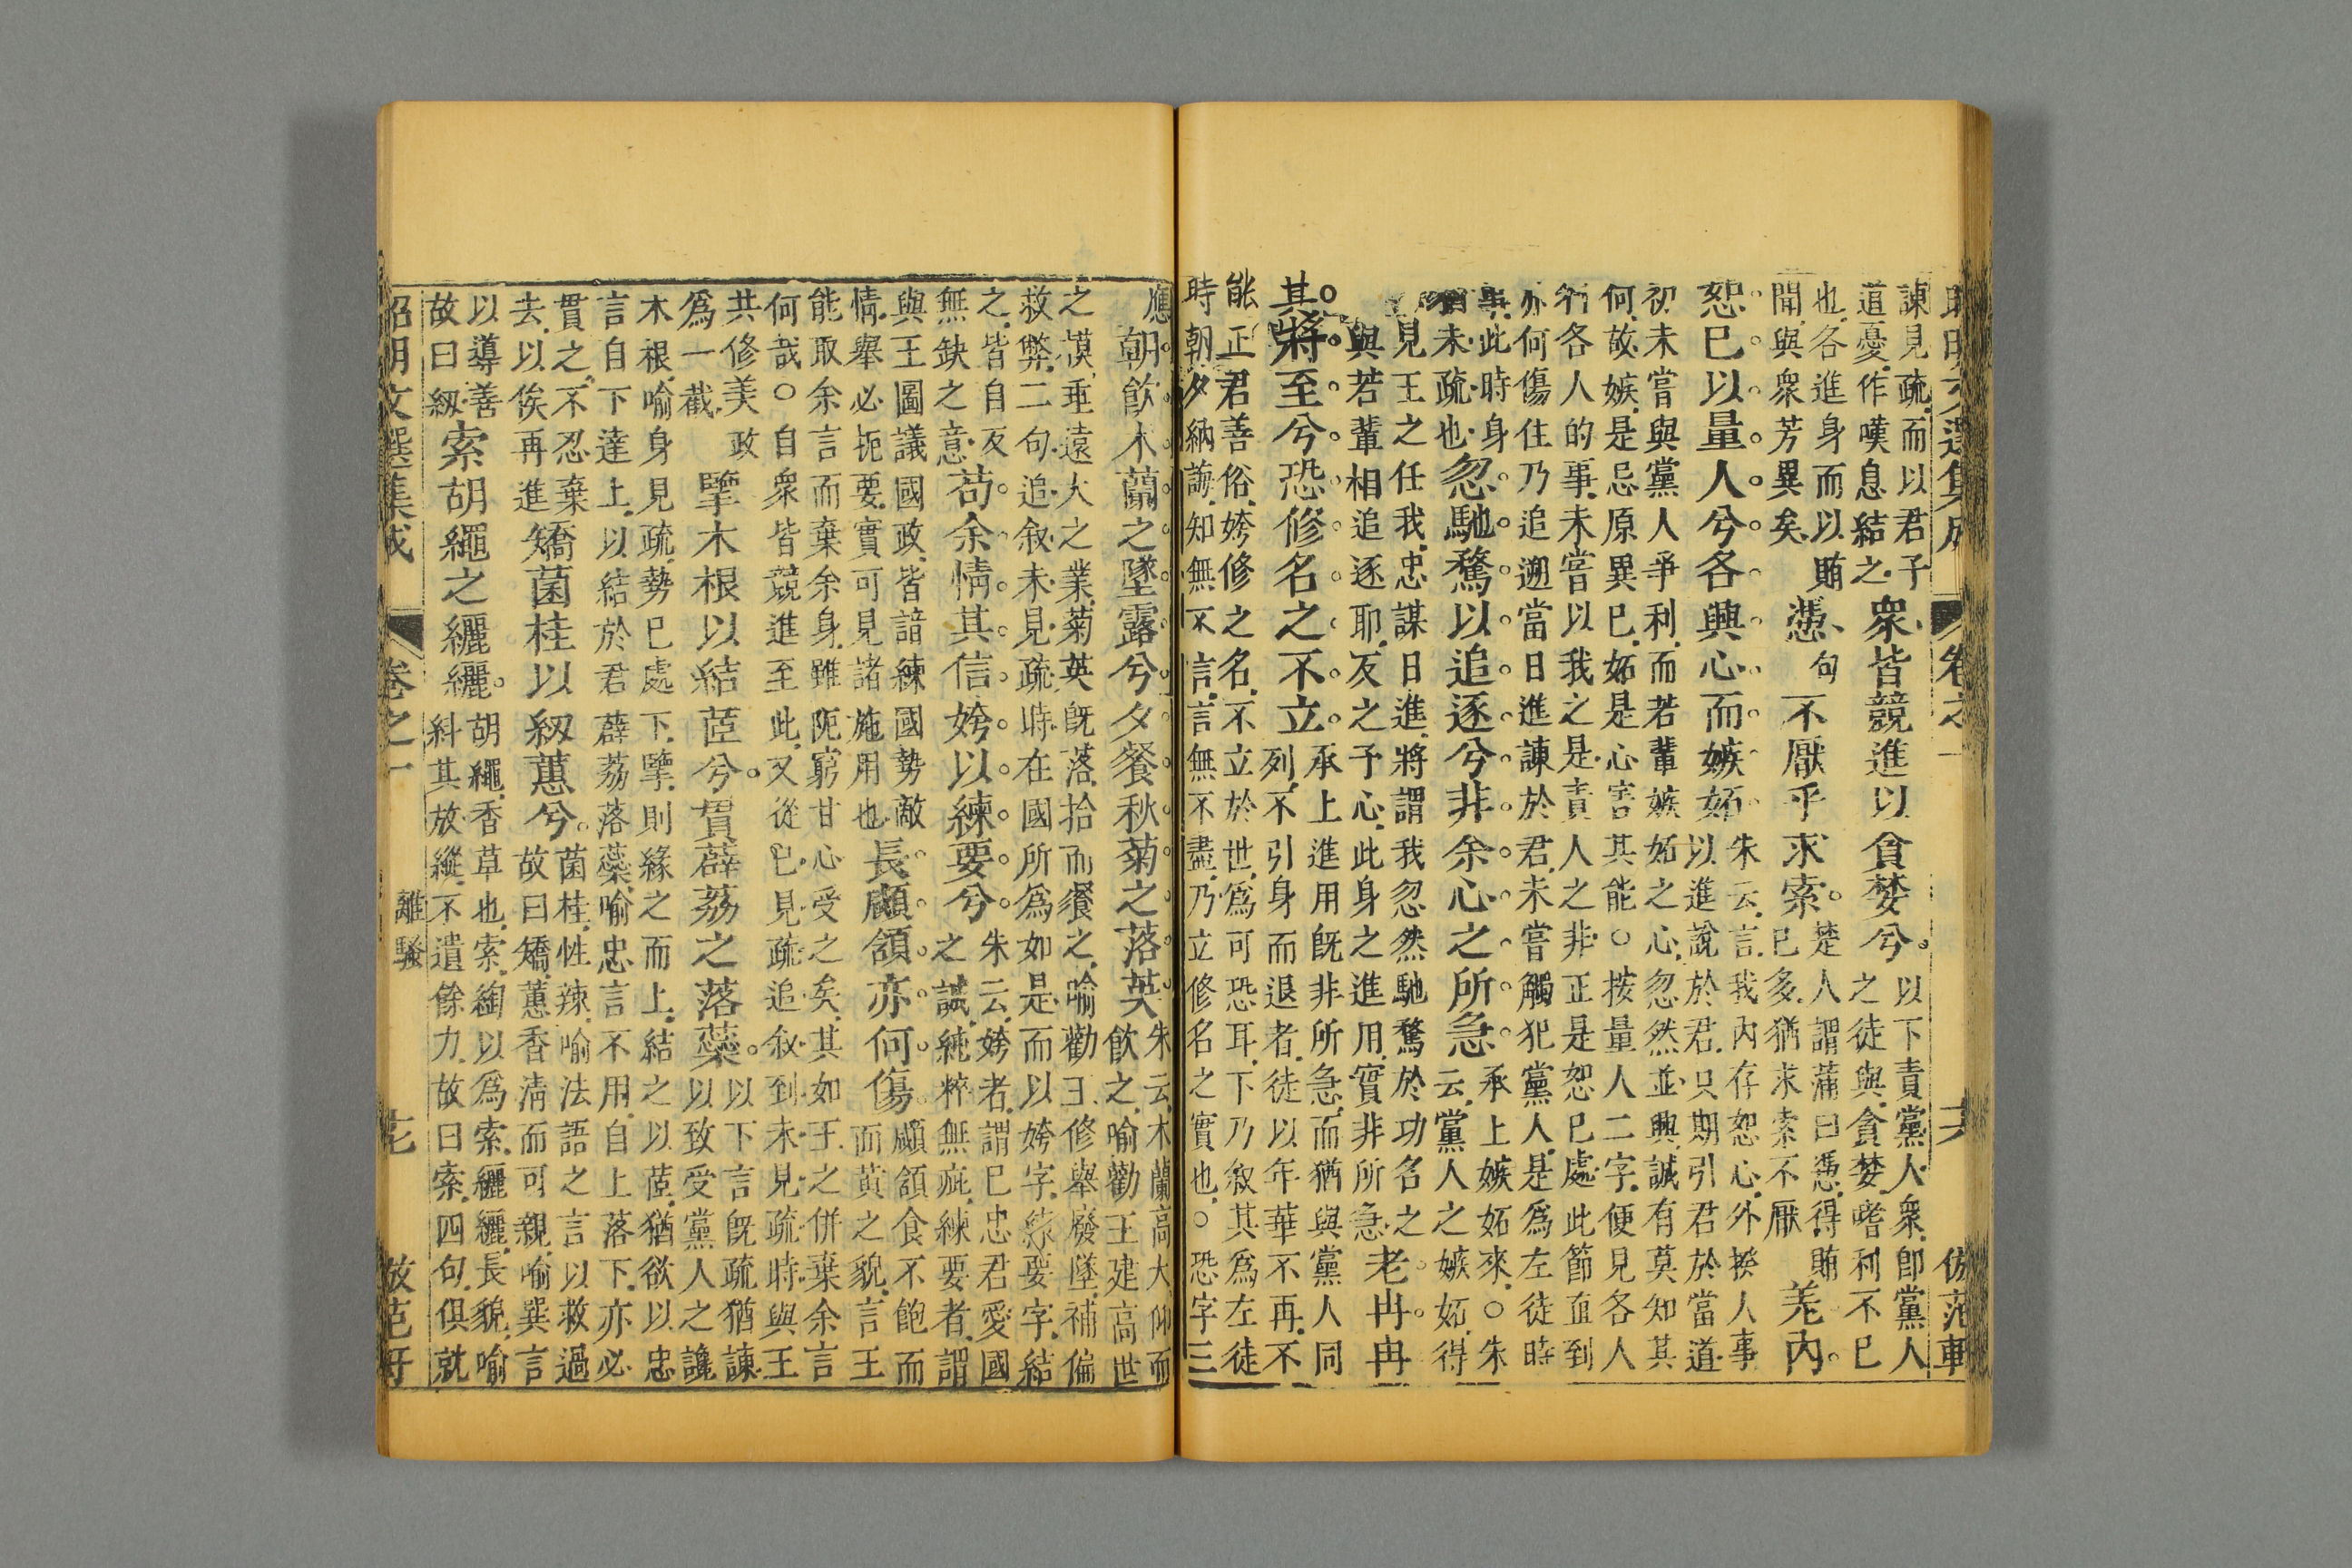 諫見疏而以君子
道憂作嘆息結之
衆皆競進以貪婪兮
以下責黨人衆卽黨人
之徒與貪婪嗜利不已
也各進身而以賄
聞與衆芳異矣
憑
句
不厭乎求索
楚人謂滿曰憑得賄
已多猶求索不厭
羌內
恕已以量人兮各興心而嫉妬
朱云言我內存恕心外揆人事
以進說於君只期引君於當道
初未嘗與黨人爭利而若輩嫉妬之心忽然並興誠有莫知其
何故嫉是忌原異已妬是心害其能○按量人二字便見各人
各人的事未嘗以我之是責人之非正是恕已處此節直到
亦何傷住乃追遡當日進諫於君未嘗觸犯黨人是爲左徒時
事此時身
猶未疏也
忽馳騖以追逐兮非余心之所急
承上嫉妬來○朱
云黨人之嫉妬得
見王之任我忠謀日進將謂我忽然馳騖於功名之
與若輩相追逐耶反之予心此身之進用實非所急
老冉冉
其將至兮恐修名之不立
承上進用旣非所急而猶與黨人同
列不引身而退者徒以年華不再不
能正君善俗姱修之名不立於世爲可恐耳下乃敘其爲左徒
時朝夕納誨知無不言言無不盡乃立修名之實也○恐字三
應
朝飮木蘭之墜露兮夕餐秋菊之落英
朱云木蘭高大仰而
飮之喻勸王建高世
之謨垂遠大之業菊英旣落拾而餐之喻勸王修舉廢墜補偏
救弊二句追敘未見疏時在國所爲如是而以姱字練要字結
之皆自反
無缺之意
苟余情其信姱以練要兮
朱云姱者謂已忠君愛國
之誠純粹無疵練要者謂
與王圖議國政皆諳練國勢敵
情舉必扼要實可見諸施用也
長顑頷亦何傷
顑頷食不飽而
而黃之貌言王
能取余言而棄余身雖阨窮甘心受之矣其如王之併棄余言
何哉○自衆皆競進至此又從已見疏追敘到未見疏時與王
共修美政
爲一截
擥木根以結茝兮貫薜荔之落蘂
以下言旣疏猶諫
以致受黨人之讒
木根喻身見疏勢已處下擥則緣之而上結之以茝猶欲以忠
言自下達上以結於君薜荔落蘂喻忠言不用自上落下亦必
貫之不忍棄
去以俟再進
矯菌桂以紉蕙兮
菌桂性辣喻法語之言以救過
故曰矯蕙香淸而可親喻巽言
以導善
故曰紉
索胡繩之纚纚
胡繩香草也索綯以爲索纚纚長貌喻
糾其放縱不遺餘力故曰索四句俱就
昭明文選集成
卷之一
離騷